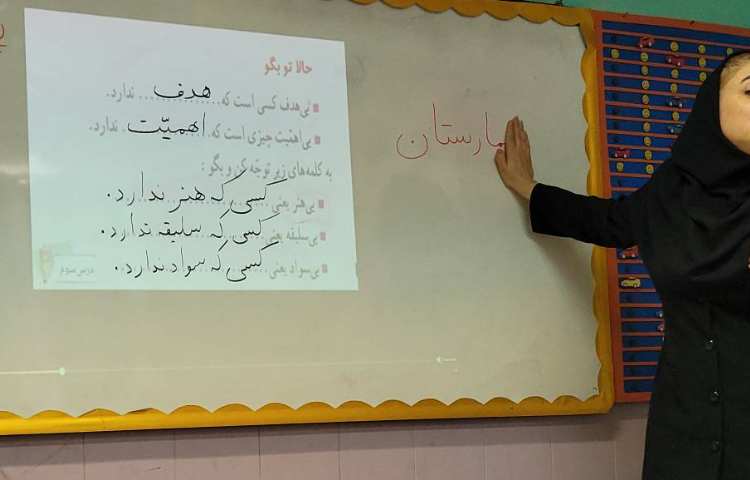 حالا تو بگو
■ بی‌هدف کسی است که هدف ندارد.
■ بی‌اهمّیّت چیزی است که اهمیّت ندارد.
به کلمه‌های زیر توجّه کن و بگو :
■ بی‌هنر یعنی کسی که هنر ندارد.
■ بی‌سلیقه یعنی کسی که سلیقه ندارد.
■ بی‌سواد یعنی کسی که سواد ندارد.
درس سوم
یمارستان